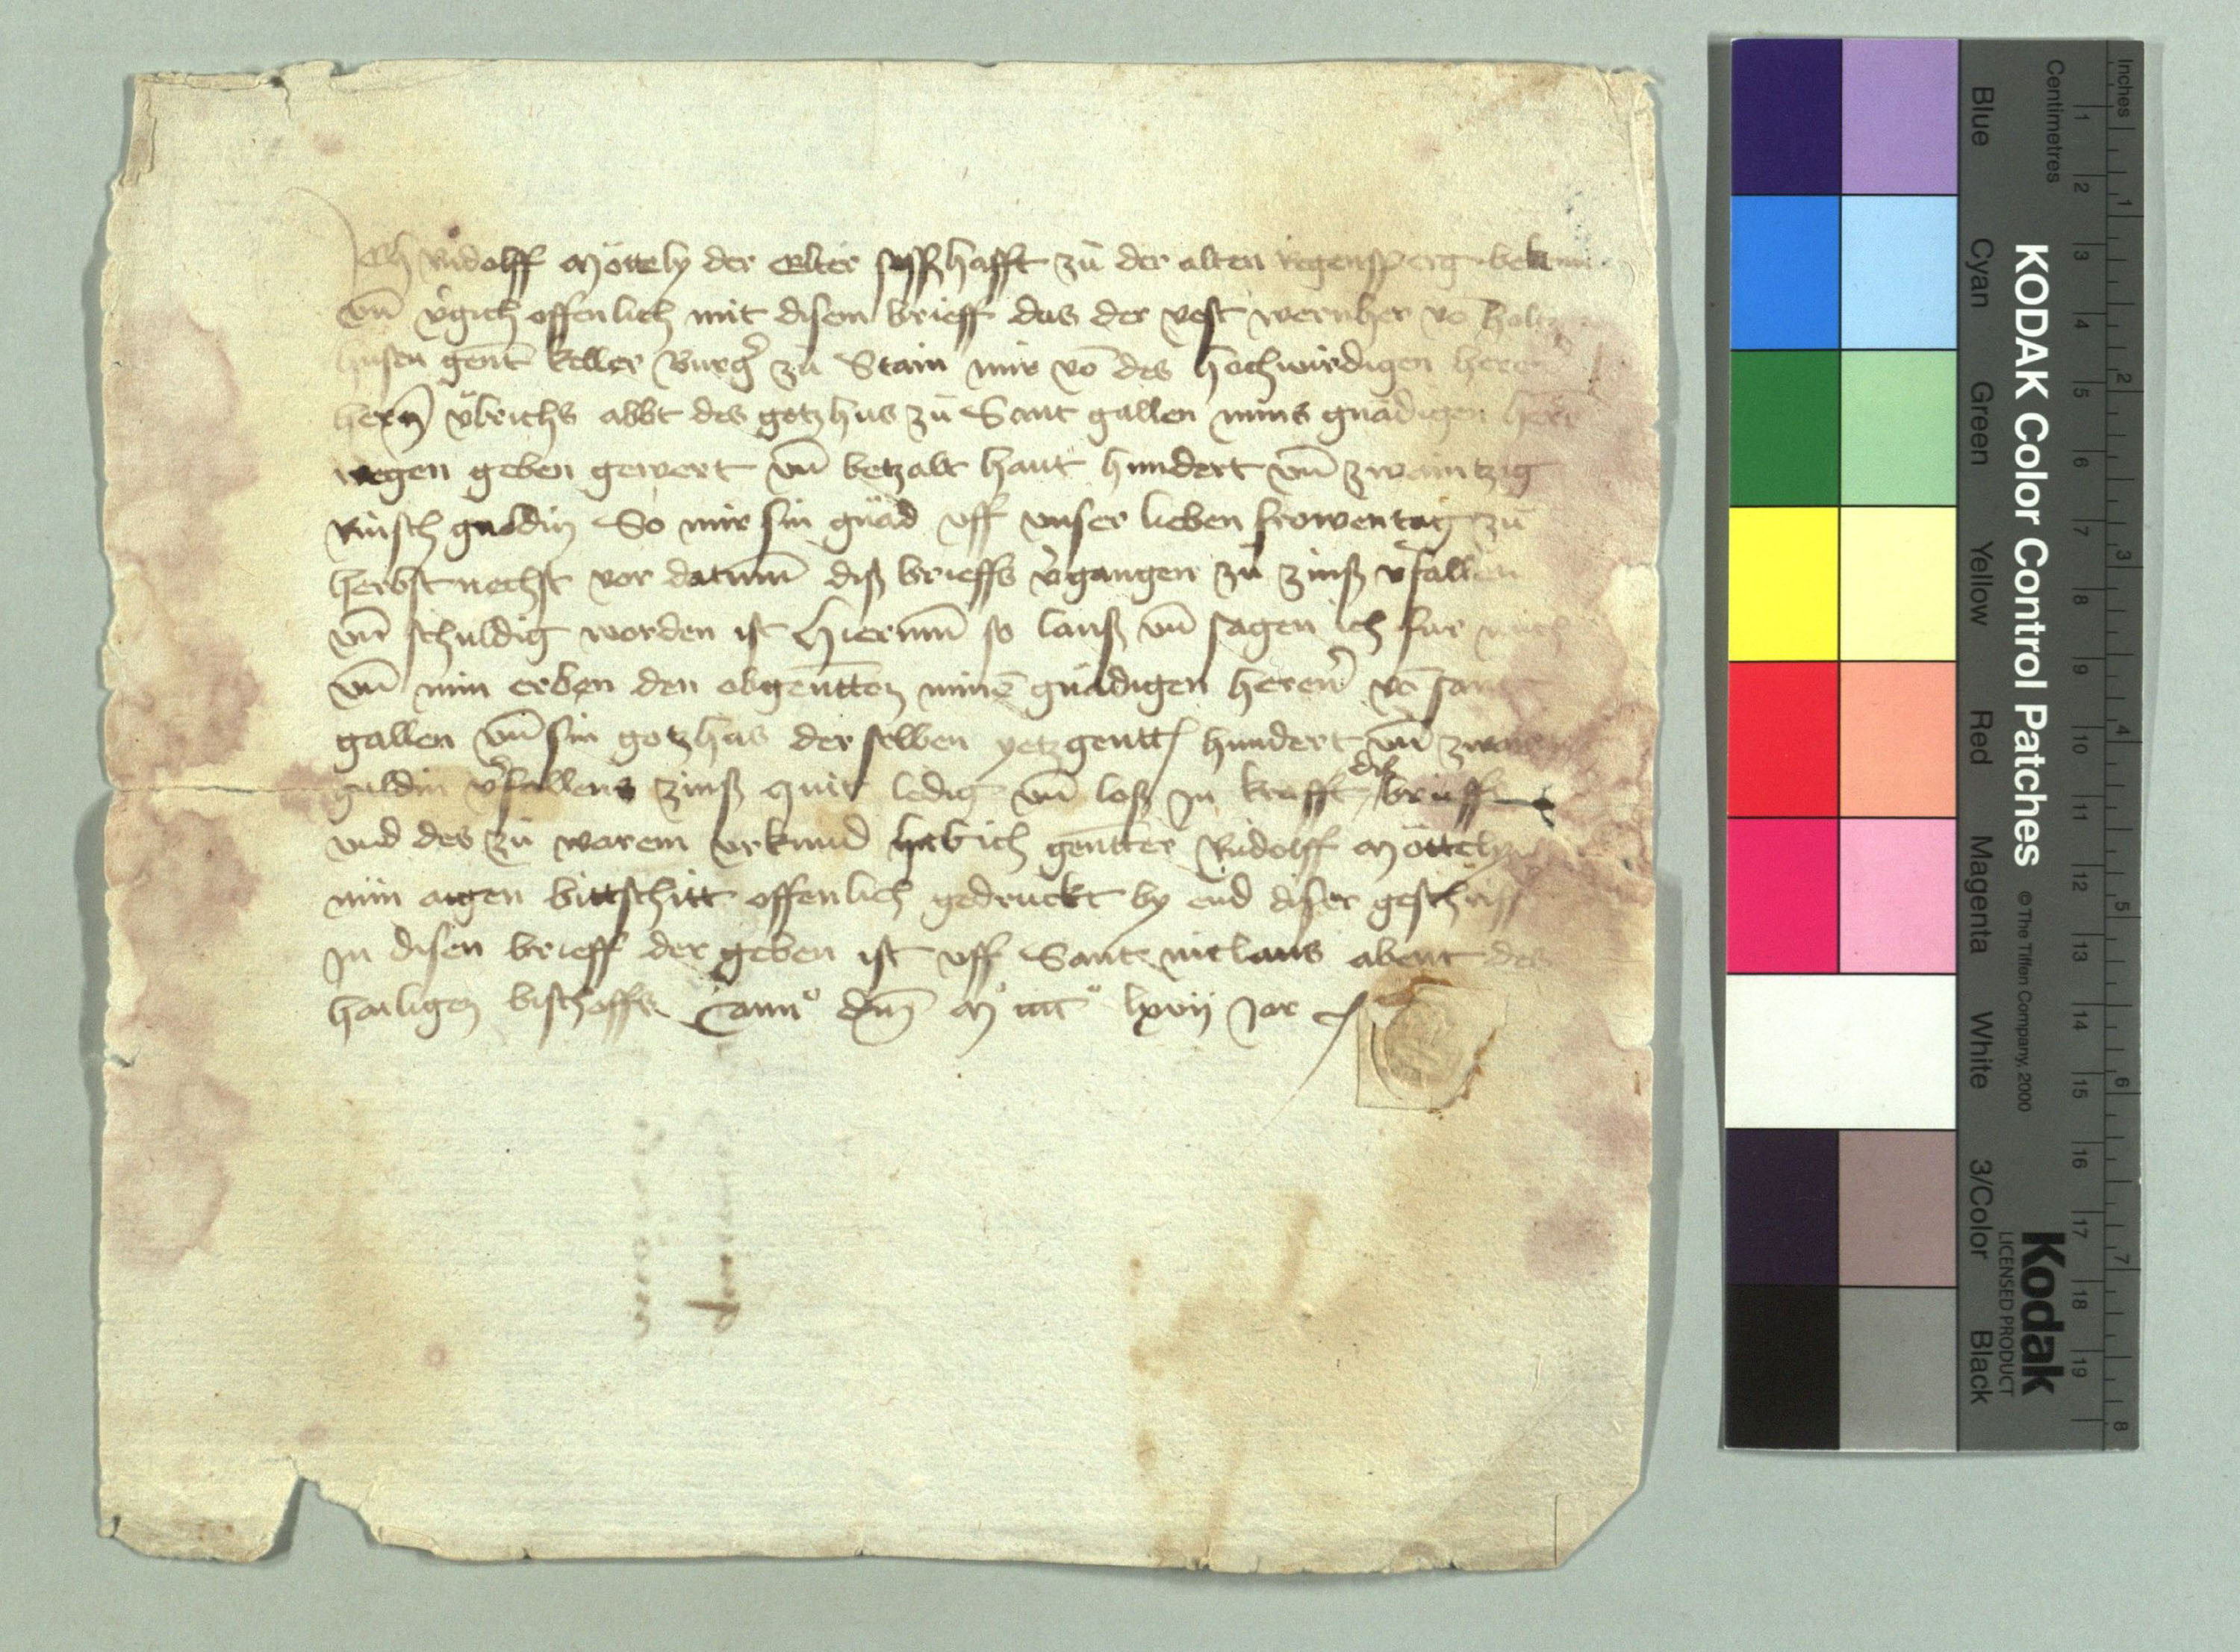 Ich Růdolff Möttely der Elter seßhafft zů der alten Regensperg bekenn
vn̄ v̓gich offenlich mit disem brieff das der vest wernher vō holtz
husen gen̄t keller Burg̓ zů Stain mir vō des hochwirdigen heren
hern̄ Ůlrichs abbt des gotzhus zů Sant gallen mins gnädigen herr
wegen geben gewert vn̄ betzalt haut hundert vn̄ zwaintzig
Rinsch guldin So mir sin gnäd vff vnser lieben frowen tag zů
herbst nechst vor datum̄ diß brieffs v̓gangen zů zinß v̓fallen
vn̄ schuldig worden ist Hierum̄ so lauß vn̄ sagen ich für mich
vn̄ min erben den obgen̄tten minē gnädigen heren̓ vō sant
gallen vn̄ sin gotzhus der selben yetzgen̄tt hundert vn̄ zwain
guldin v̓fallens zinß quit ledig vn̄ loß In krafft diß brieffs
vnd des zů warem vrkund hab ich gen̄tter Růdolff Möttely
min aigen bittschitt offenlich gedruckt by end diser geschrifft
In disen brieff der geben ist vff Sant niclaus abent des
hailigen bischoffs Anno dn̄i Mº iiiicº lxvii Jar
KODAK Color Control Patches
© The Tiffen Company, 2000
Kodak
LICENSED PRODUCT
Blue
Cyan
Green
Yellow
Red
Magenta
White
3/Color
Black
Inches
1 2 3 4 5 6 7 8
Centimetres
1 2 3 4 5 6 7 8 9 10 11 12 13 14 15 16 17 18 19